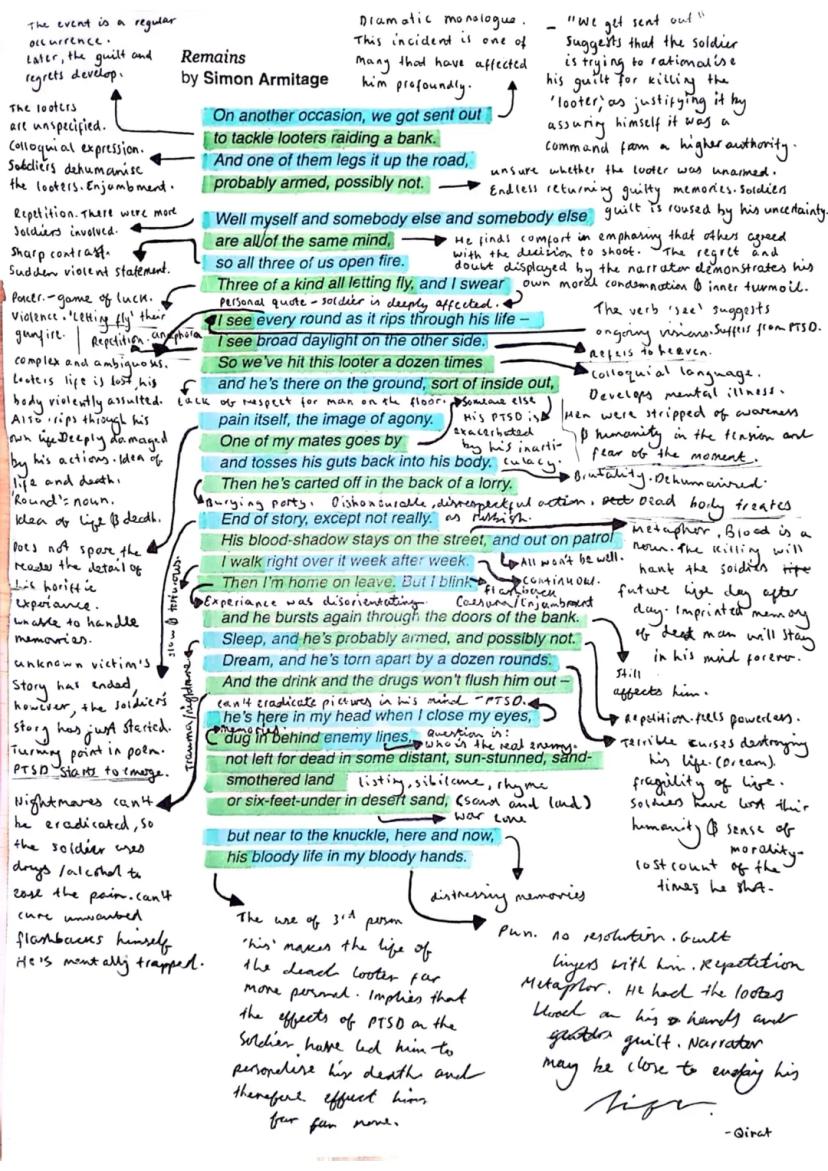 The event is a regular
occurrence.
Later, the guilt and
regrets develop.
Dramatic monologue.
This incident is one of
many that have affected
him profoundly.
- "We get sent out"
Suggests that the soldier
is trying to rationalise
his guilt for killing the
'looter', as justifying it by
assuring himself it was a
command from a higher authority.
Remains
by Simon Armitage
The looters
are unspecified.
Colloquial expression.
Soldiers dehumanise
the looters. Enjambment.
On another occasion, we got sent out
to tackle looters raiding a bank.
And one of them legs it up the road,
probably armed, possibly not.
unsure whether the looter was unarmed.
Endless returning guilty memories. Soldiers
guilt is roused by his uncertainty.
Repetition. There were more
Soldiers involved.
Sharp contrast.
Sudden violent statement.
Well myself and somebody else and somebody else
are all of the same mind,
so all three of us open fire.
Three of a kind all letting fly, and I swear
He finds comfort in emphasing that others agreed
with the decision to shoot. The regret and
doubt displayed by the narrator demonstrates his
own moral condemnation & inner turmoil.
Poker - game of luck.
violence. 'Letting fly' their
gunfire.
Repetition. anaphora
personal quote - soldier is deeply affected.
I see every round as it rips through his life –
I see broad daylight on the other side.
So we've hit this looter a dozen times
and he's there on the ground, sort of inside out,
The verb 'see' suggests
ongoing visions. Suffers from PTSD.
Refers to heaven.
Colloquial language.
Develops mental illness.
complex and ambiguous.
Looters life is lost, his
body violently assulted.
Also rips through his
own life. Deeply damaged
by his actions. Idea of
life and death.
'Round' = noun.
Idea of life & death.
Lack of respect for man on the floor.
Someone else
His PTSD is
exacerbated
by his inarti-
culacy.
Men were stripped of awareness
& humanity in the tension and
fear of the moment.
pain itself, the image of agony.
One of my mates goes by
and tosses his guts back into his body.
Then he's carted off in the back of a lorry.
Brutality. Dehumanised.
Burying party. Dishonourable, disrespectful action.
Dead body treates
as rubbish.
End of story, except not really.
His blood-shadow stays on the street, and out on patrol
I walk right over it week after week.
Then I'm home on leave. But I blink
Does not spare the
reader the detail of
his horiffic
experiance.
unable to handle
memories.
slow & torturous.
All won't be well.
continuous.
flashback
Experiance was disorientating.
Caesura/Enjambment
Metaphor. Blood is a
noun. The killing will
hant the soldiers
future life day after
day. Imprinted memory
of dead man will stay
in his mind forever.
and he bursts again through the doors of the bank.
Sleep, and he's probably armed, and possibly not.
Dream, and he's torn apart by a dozen rounds.
And the drink and the drugs won't flush him out –
unknown victim's
Story has ended,
however, the soldier's
story has just started.
Turning point in poem.
PTSD starts to emerge.
Trauma/nightmare
Still
affects him.
Repetition. feels powerless.
can't eradicate pictures in his mind - PTSD.
he's here in my head when I close my eyes,
memories.
dug in behind enemy lines,
question is:
who is the real enemy.
not left for dead in some distant, sun-stunned, sand-
smothered land
listing, sibilance, rhyme
or six-feet-under in desert sand,
(sand and land)
war zone
Terrible curses destroying
his life. (Dream).
fragility of life.
soldiers have lost their
humanity & sense of
morality -
lost count of the
times he shot.
Nightmares can't
be eradicated, so
the soldier uses
drugs/alcohol to
ease the pain. can't
cure unwanted
flashbacks himself
He's mentally trapped.
but near to the knuckle, here and now,
his bloody life in my bloody hands.
distressing memories
The use of 3rd person
'his' makes the life of
the dead looter far
more personal. Implies that
the effects of PTSD on the
soldier have led him to
personalise his death and
therefore effect him
far more.
Pun. no resolution. Guilt
lingers with him. Repetition
Metaphor. He had the looters
blood on his hands and
guilt. Narrator
may be close to ending his
life.
-Qirat